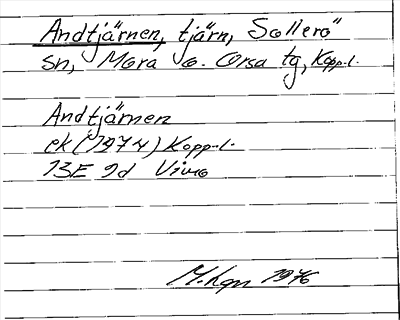 Andtjärnen, tjärn, Sollerö
sn, Mora o. Orsa tg, Kopp.l.
Andtjärnen
ek (1974) Kopp.l.
13E 9d Vimo
M.hgn 1976